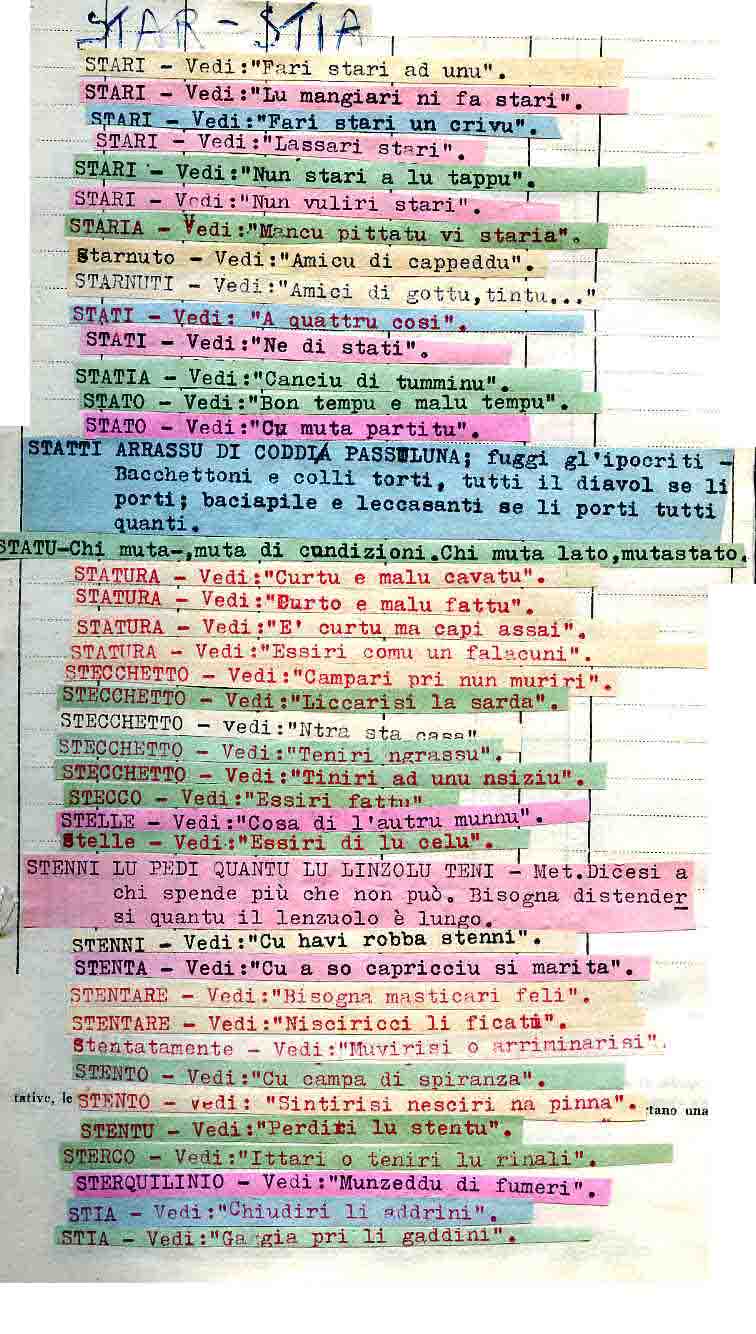 STAR - STIA
STARI - Vedi:"Fari stari ad unu".
STARI - Vedi:"Lu mangiari ni fa stari".
STARI - Vedi:"Fari stari un crivu".
STARI - Vedi:"Lassari stari".
STARI - Vedi:"Nun stari a lu tappu".
STARI - Vedi:"Nun vuliri stari".
STARIA - Vedi:"Mancu pittatu vi staria".
Starnuto - Vedi:"Amicu di cappeddu".
STARNUTI - Vedi:"Amici di gottu,tintu..."
STATI - Vedi: "A quattru cosi".
STATI - Vedi:"Ne di stati".
STATIA - Vedi:"Canciu di tumminu".
STATO - Vedi:"Bon tempu e malu tempu".
STATO - Vedi:"Cu muta partitu".
STATTI ARRASSU DI CODDIA PASSULUNA; fuggi gl'ipocriti -
Bacchettoni e colli torti, tutti il diavol se li
porti; baciapile e leccasanti se li porti tutti
quanti.
STATU-Chi muta-,muta di cundizioni.Chi muta lato,mutastato.
STATURA - Vedi:"Curtu e malu cavatu".
STATURA - Vedi:"Curto e malu fattu".
STATURA - Vedi:"E' curtu ma capi assai".
STATURA - Vedi:"Essiri comu un falacuni".
STECCHETTO - Vedi:"Campari pri nun muriri".
STECCHETTO - Vedi:"Liccarisi la sarda".
STECCHETTO - vedi:"Ntra sta casa"
STECCHETTO - Vedi:"Teniri ngrassu".
STECCHETTO - Vedi:"Tiniri ad unu nsiziu".
STECCO - Vedi:"Essiri fattu"
STELLE - Vedi:"Cosa di l'autru munnu".
Stelle - Vedi:"Essiri di lu celu".
STENNI LU PEDI QUANTU LU LINZOLU TENI - Met.Dicesi a
chi spende più che non può. Bisogna distender
si quantu il lenzuolo è lungo.
STENNI - Vedi:"Cu havi robba stenni".
STENTA - Vedi:"Cu a so capricciu si marita".
STENTARE - Vedi:"Bisogna masticari feli".
STENTARE - Vedi:"Nisciricci li ficati".
Stentatamente - Vedi:"Muvirisi o arriminarisi".
STENTO - Vedi:"Cu campa di spiranza".
tative, le STENTO - vedi: "Sintirisi nesciri na pinna". tano una
STENTU - Vedi:"Perdiri lu stentu".
STERCO - Vedi:"Ittari o teniri lu rinali".
STERQUILINIO - Vedi:"Munzeddu di fumeri".
STIA - Vedi:"Chiudiri li addrini".
STIA - Vedi:"Gaggia pri li gaddini".